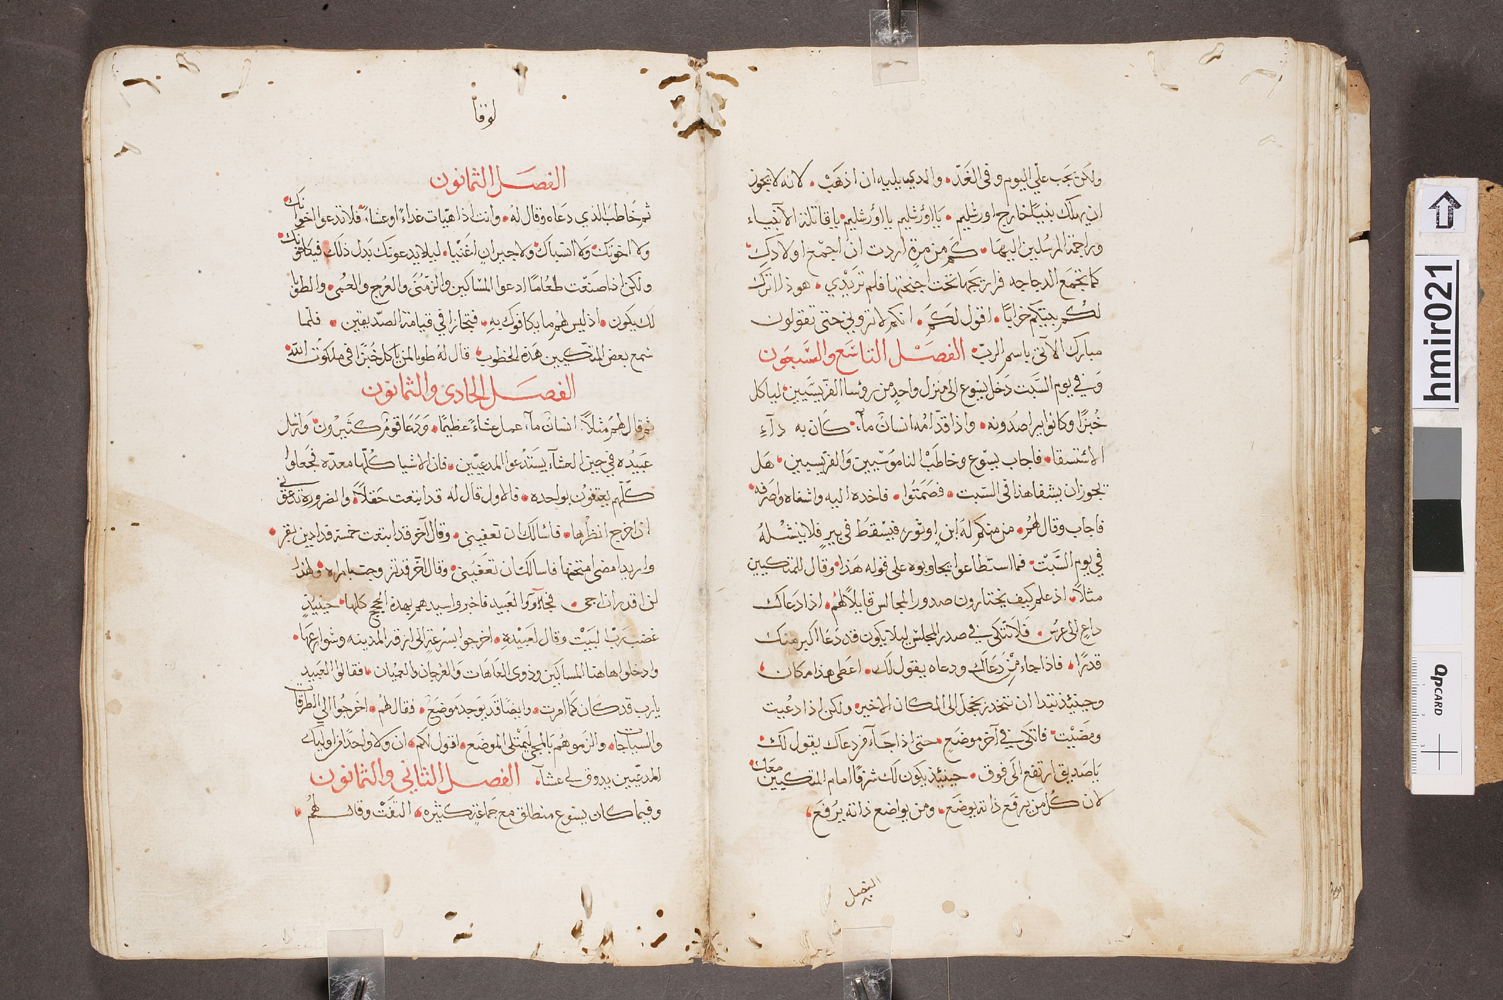 ولكن يجب علي اليوم وفي الغد، والذي يليه ان اذهب. لانه لا يجوز
ان يهلك نبيًا خارج اورشليم. يا اورشليم يا اورشليم يا قاتلة الانبياء
وراجمة المرسلين اليها. كم من مرة اردت ان اجمع اولادك
كما تجمع الدجاجه فراريجها تحت اجنحتها فلم تريدي. هوذا اترك
لكم بيتكم خرابًا. اقول لكم. انكم لا تروني حتى تقولون
مبارك الاتي باسم الرب. الفصل التاسع والسبعون
وفي يوم السبت دخل يسوع الى منزل واحد من روسا الفريسيين لياكل
خبزًا وكانوا يراصدونه. واذا قدامه انسان مآ. كان به دآء
الاستسقا. فاجاب يسوع وخاطب الناموسيين والفريسيين. هل
يجوز ان يشفا هذا في السبت. فصمتوا. فاخده اليه واشفاه واصرفه.
فاجاب وقال لهم. من منكم له ابن او ثور، فيسقط في بير فلا ينشله
في يوم السبت. فما استطاعوا يجاوبوه على قوله هذا. وقال للمتكيين
مثلاً. اذ علم كيف يختارون صدور المجالس قايلا لهم. اذا دعاك
داعٍ الى عرس. فلا تتكي في صدر المجلس ليلا يكون قد دعا اكبر منك
قدرًا. فاذا جاء من دعاك ودعاه يقول لك. اعطي هذا مكان
وحينئذ تبدا ان تنحدر بخجل الى المكان الاخير. ولكن اذا دعيت
ومضيت. فاتكي في آخر موضع. حتى اذا جآء من دعاك يقول لك.
ياصديق ارتفع الى فوق. حينئذ يكون لك شرفًا امام المتكيين معك.
لان كل من يرفع ذاته يوضع. ومن يواضع ذاته يرفع.
الفصل
لوقا
الفصل الثمانون
ثم خاطب الذي دعاه وقال له. وانت اذا هيات غداءً او عشاءً، فلا تدعوا اخوانك
ولا اخوتك ولا انسباك ولا جيران اغنيا. ليلا يدعونك بدل ذلك فيكافونك.
ولكن اذا صنعت طعامًا ادعوا المساكين والزمنى والعرج والعمي. والطوبا
لك يكون. اذ ليس لهم ما يكافوك به. فتجازا في قيامة الصديقين. فلما
سمع بعض المتكيين هذه الخطوب، قال له طوبا لمن ياكل خبزا في ملكوت الله
الفصل الحادي والثمانون
ثم قال لهم مثلاً. انسان مآ، عمل عشاءً عظيمًا. ودعا قوم كثيرون. وارسل
عبيده في حين العشآ، يستدعوا المدعيين. فان الاشيا كلها معده فجعلوا
كلهم يعتفون بواحده. فالاول قال له قد ابتعت حقلاً. والضروره تدعوني
ان اخرج انظرها. فاسالك ان تعفيني. وقال آخر قد ابتعت خمسة فدادين بقر.
واريد امضي امتحنها فاسالك ان تعفيني. وقال آخر قد تزوجت بامراه. ولهذا
لن اقدر ان اجي. فجآووا العبيد فاخبروا سيدهم بهذه الحجج كلها. حينئذٍ
غضب رب البيت وقال لعبيده. اخرجوا بسرعة الى ازقة المدينه وشوارعها.
وادخلوا هاهنا المساكين وذوي العاهات والعرجان والعميان. فقالوا العبيد
يارب قد كان كما امرت. وايضًا قد يوجد موضع. فقال لهم. اخرجوا الي الطرقات
والسباجات. والزموهم بالمجي ليمتلي الموضع. اقول لكم. ان ولا واحدا من اوليك
المدعيين يدوق لي عشآ. الفصل الثاني والثمانون
وفيما كان يسوع منطلق مع جماعة كثيره. التفت وقال لهم.